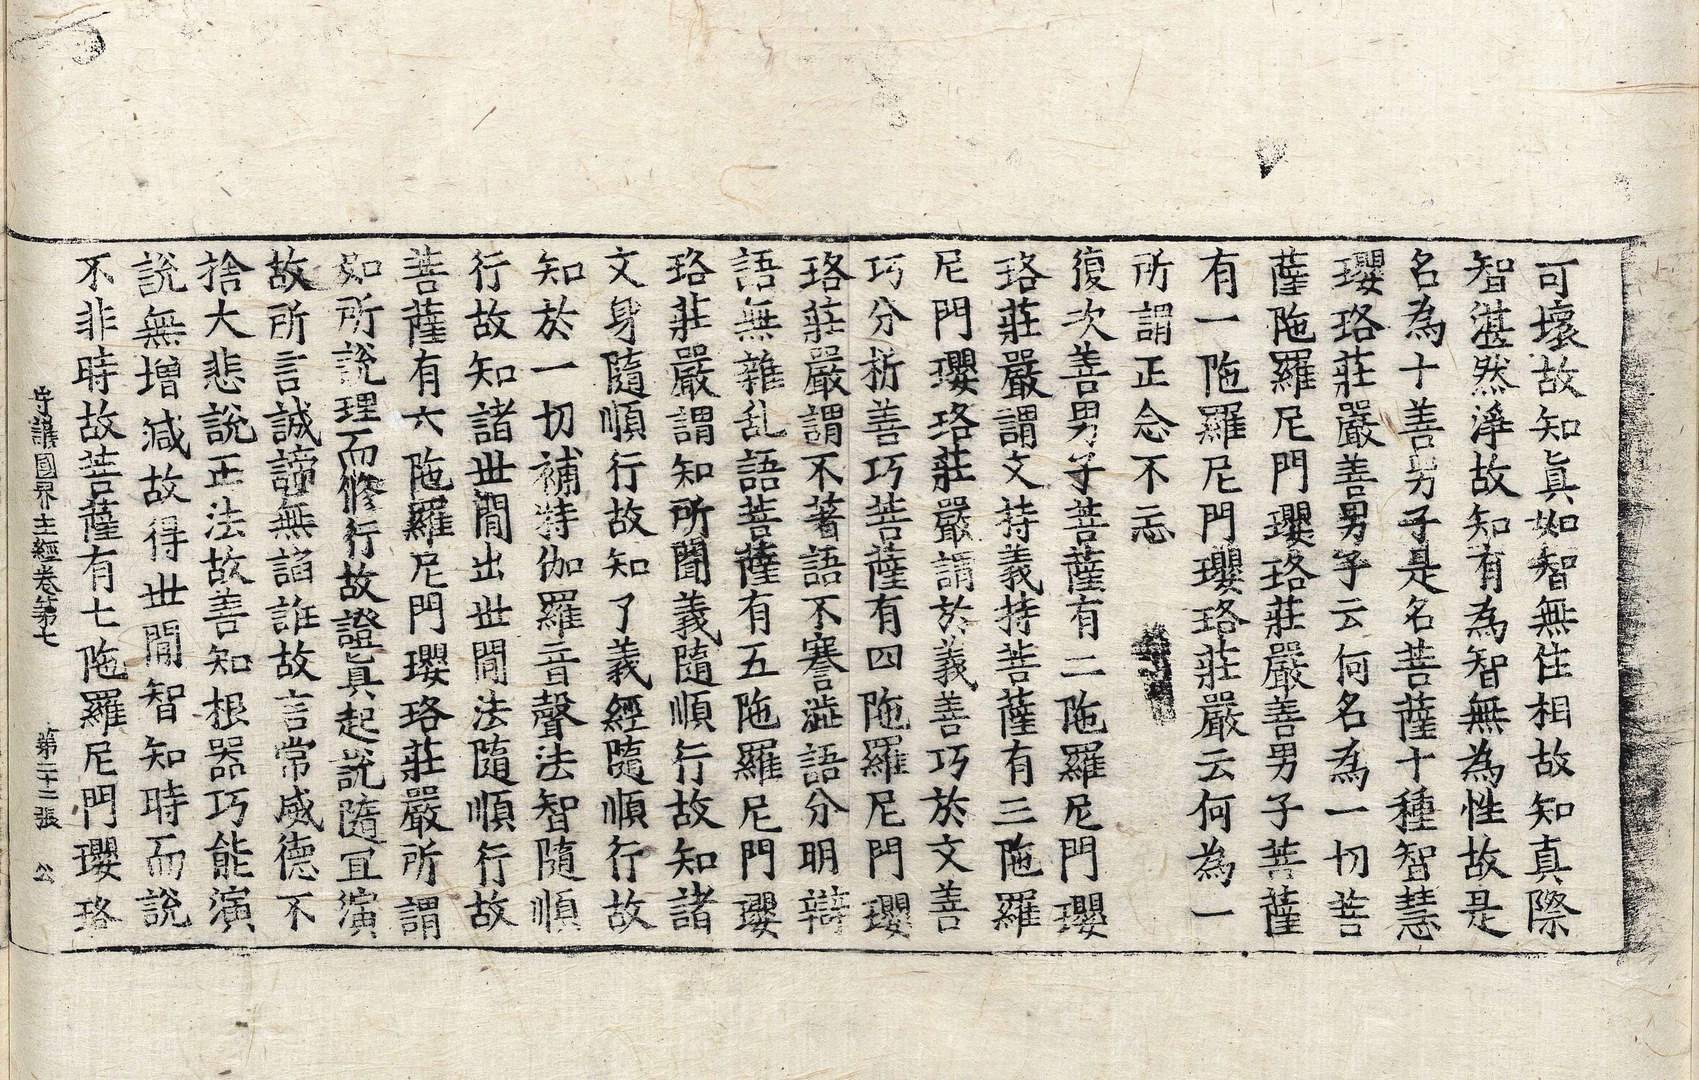 可壞故知真如智無住相故知真際
智湛然淨故知有為智無為性故是
名為十善男子是名菩薩十種智慧
瓔珞莊嚴善男子云何名為一切菩
薩陁羅尼門瓔珞莊嚴善男子菩薩
有一陁羅尼門瓔珞莊嚴云何為一
所謂正念不忘
復次善男子菩薩有二陁羅尼門瓔
珞莊嚴謂文持義持菩薩有三陁羅
尼門瓔珞莊嚴謂於義善巧於文善
巧分析善巧菩薩有四陁羅尼門瓔
珞莊嚴謂不著語不謇澁語分明辯
語無雜乱語菩薩有五陁羅尼門瓔
珞莊嚴謂知所聞義隨順行故知諸
文身隨順行故知了義經隨順行故
知於一切補特伽羅音聲法智隨順
行故知諸世閒出世閒法隨順行故
菩薩有六陁羅尼門瓔珞莊嚴所謂
如所說理而修行故證真起說隨冝演
故所言誠諦無諂誑故言常威德不
捨大悲說正法故善知根器巧能演
說無增減故得世閒智知時而說
不非時故菩薩有七陁羅尼門瓔珞
守護國界主經卷第七　第二十二張　公